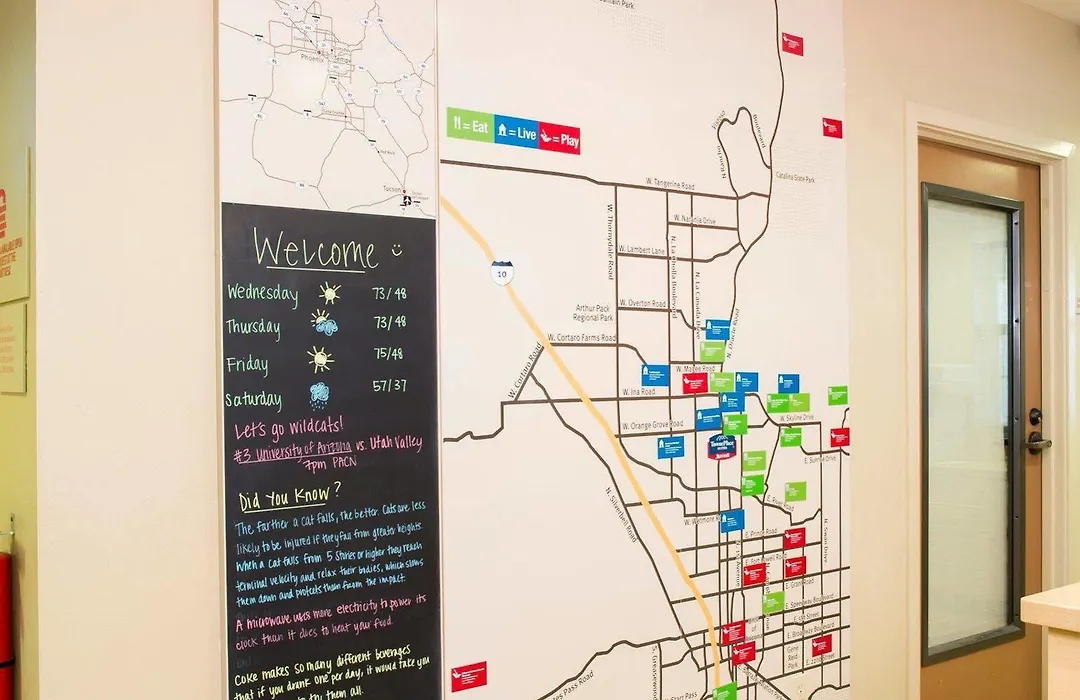 Phoenix
Tempe
Tucson
= Eat
= Live
= Play
10
W. Tangerine Road
Catalina State Park
W. Naranja Drive
W. Lambert Lane
W. Thornydale Road
N. La Cholla Boulevard
N. La Canada Drive
W. Overton Road
Arthur Pack
Regional Park
N. Oracle Road
W. Cortaro Farms Road
W. Cortaro Road
W. Magee Road
W. Ina Road
W. Orange Grove Road
W. Skyline Drive
E. Sunrise Drive
TownePlace
SUITES
Marriott
E. River Road
N. Silverbell Road
W. Wetmore Rd
E. Prince Road
E. Fort Lowell Road
E. Grant Road
E. Speedway Boulevard
E. Broadway Boulevard
Gene
Reid
Park
E. 22nd Street
Welcome
Wednesday 73/48
Thursday 73/48
Friday 75/48
Saturday 57/37
Let's go wildcats!
#3 University of Arizona vs. Utah Valley
7pm PACN
Did You Know?
The farther a cat falls, the better. Cats are less
likely to be injured if they fall from greater heights.
When a cat falls from 5 stories or higher they reach
terminal velocity and relax their bodies, which slows
them down and protects them from the impact.
A microwave uses more electricity to power its
clock than it does to heat your food.
Coke makes so many different beverages
that if you drank one per day, it would take you
to try them all.